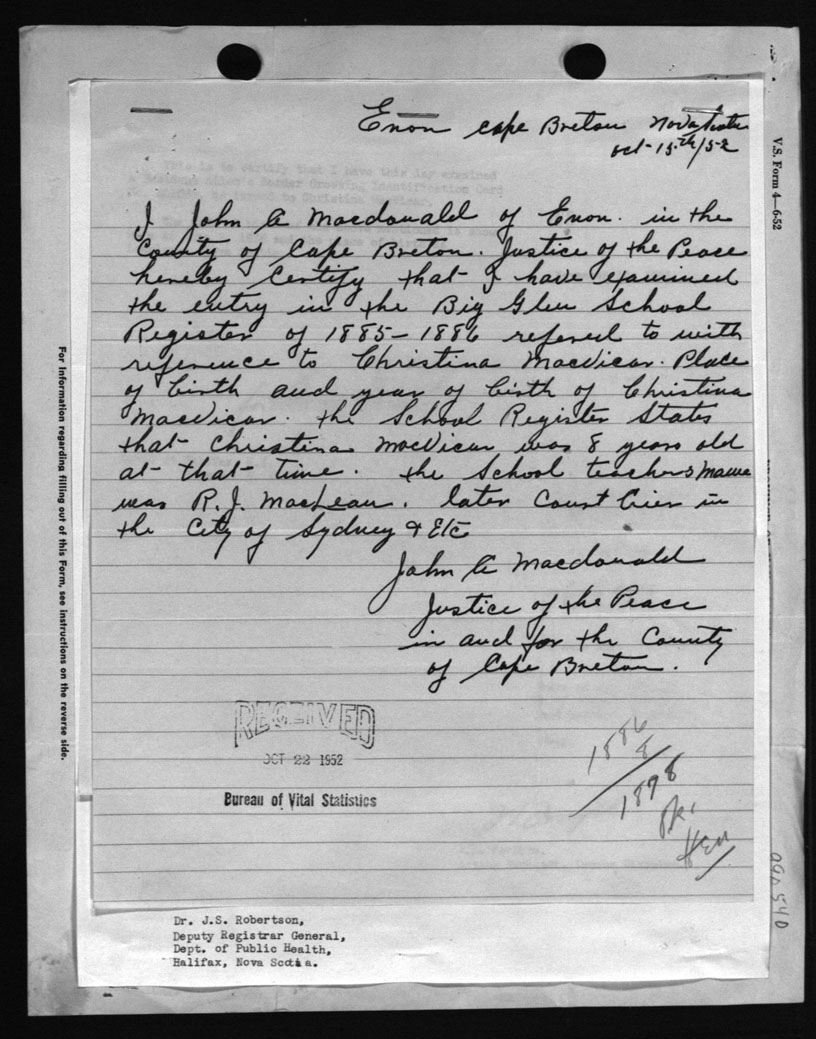 Enon Cape Breton Nova Scotia
Oct-15th/52
I John A Macdonald of Enon. in the
County of Cape Breton. Justice of the Peace
hereby Certify that I have examined
the entry in the Big Glen School
Register of 1885-1886 refered to with
reference to Christina MacVicar. Place
of birth and year of birth of Christina
MacVicar. the School Register States
that Christina MacVicar was 8 years old
at that time. the School teachers name
was R. J. MacLean. later Court Crier in
the City of Sydney & Etc
John A Macdonald
Justice of the Peace
in and for the County
of Cape Breton.
RECEIVED
OCT 22 1952
Bureau of Vital Statistics
1886
8
1878
Dr. J.S. Robertson,
Deputy Registrar General,
Dept. of Public Health,
Halifax, Nova Scotia.
V.S. Form 4—6-52
For Information regarding filling out of this Form, see instructions on the reverse side.